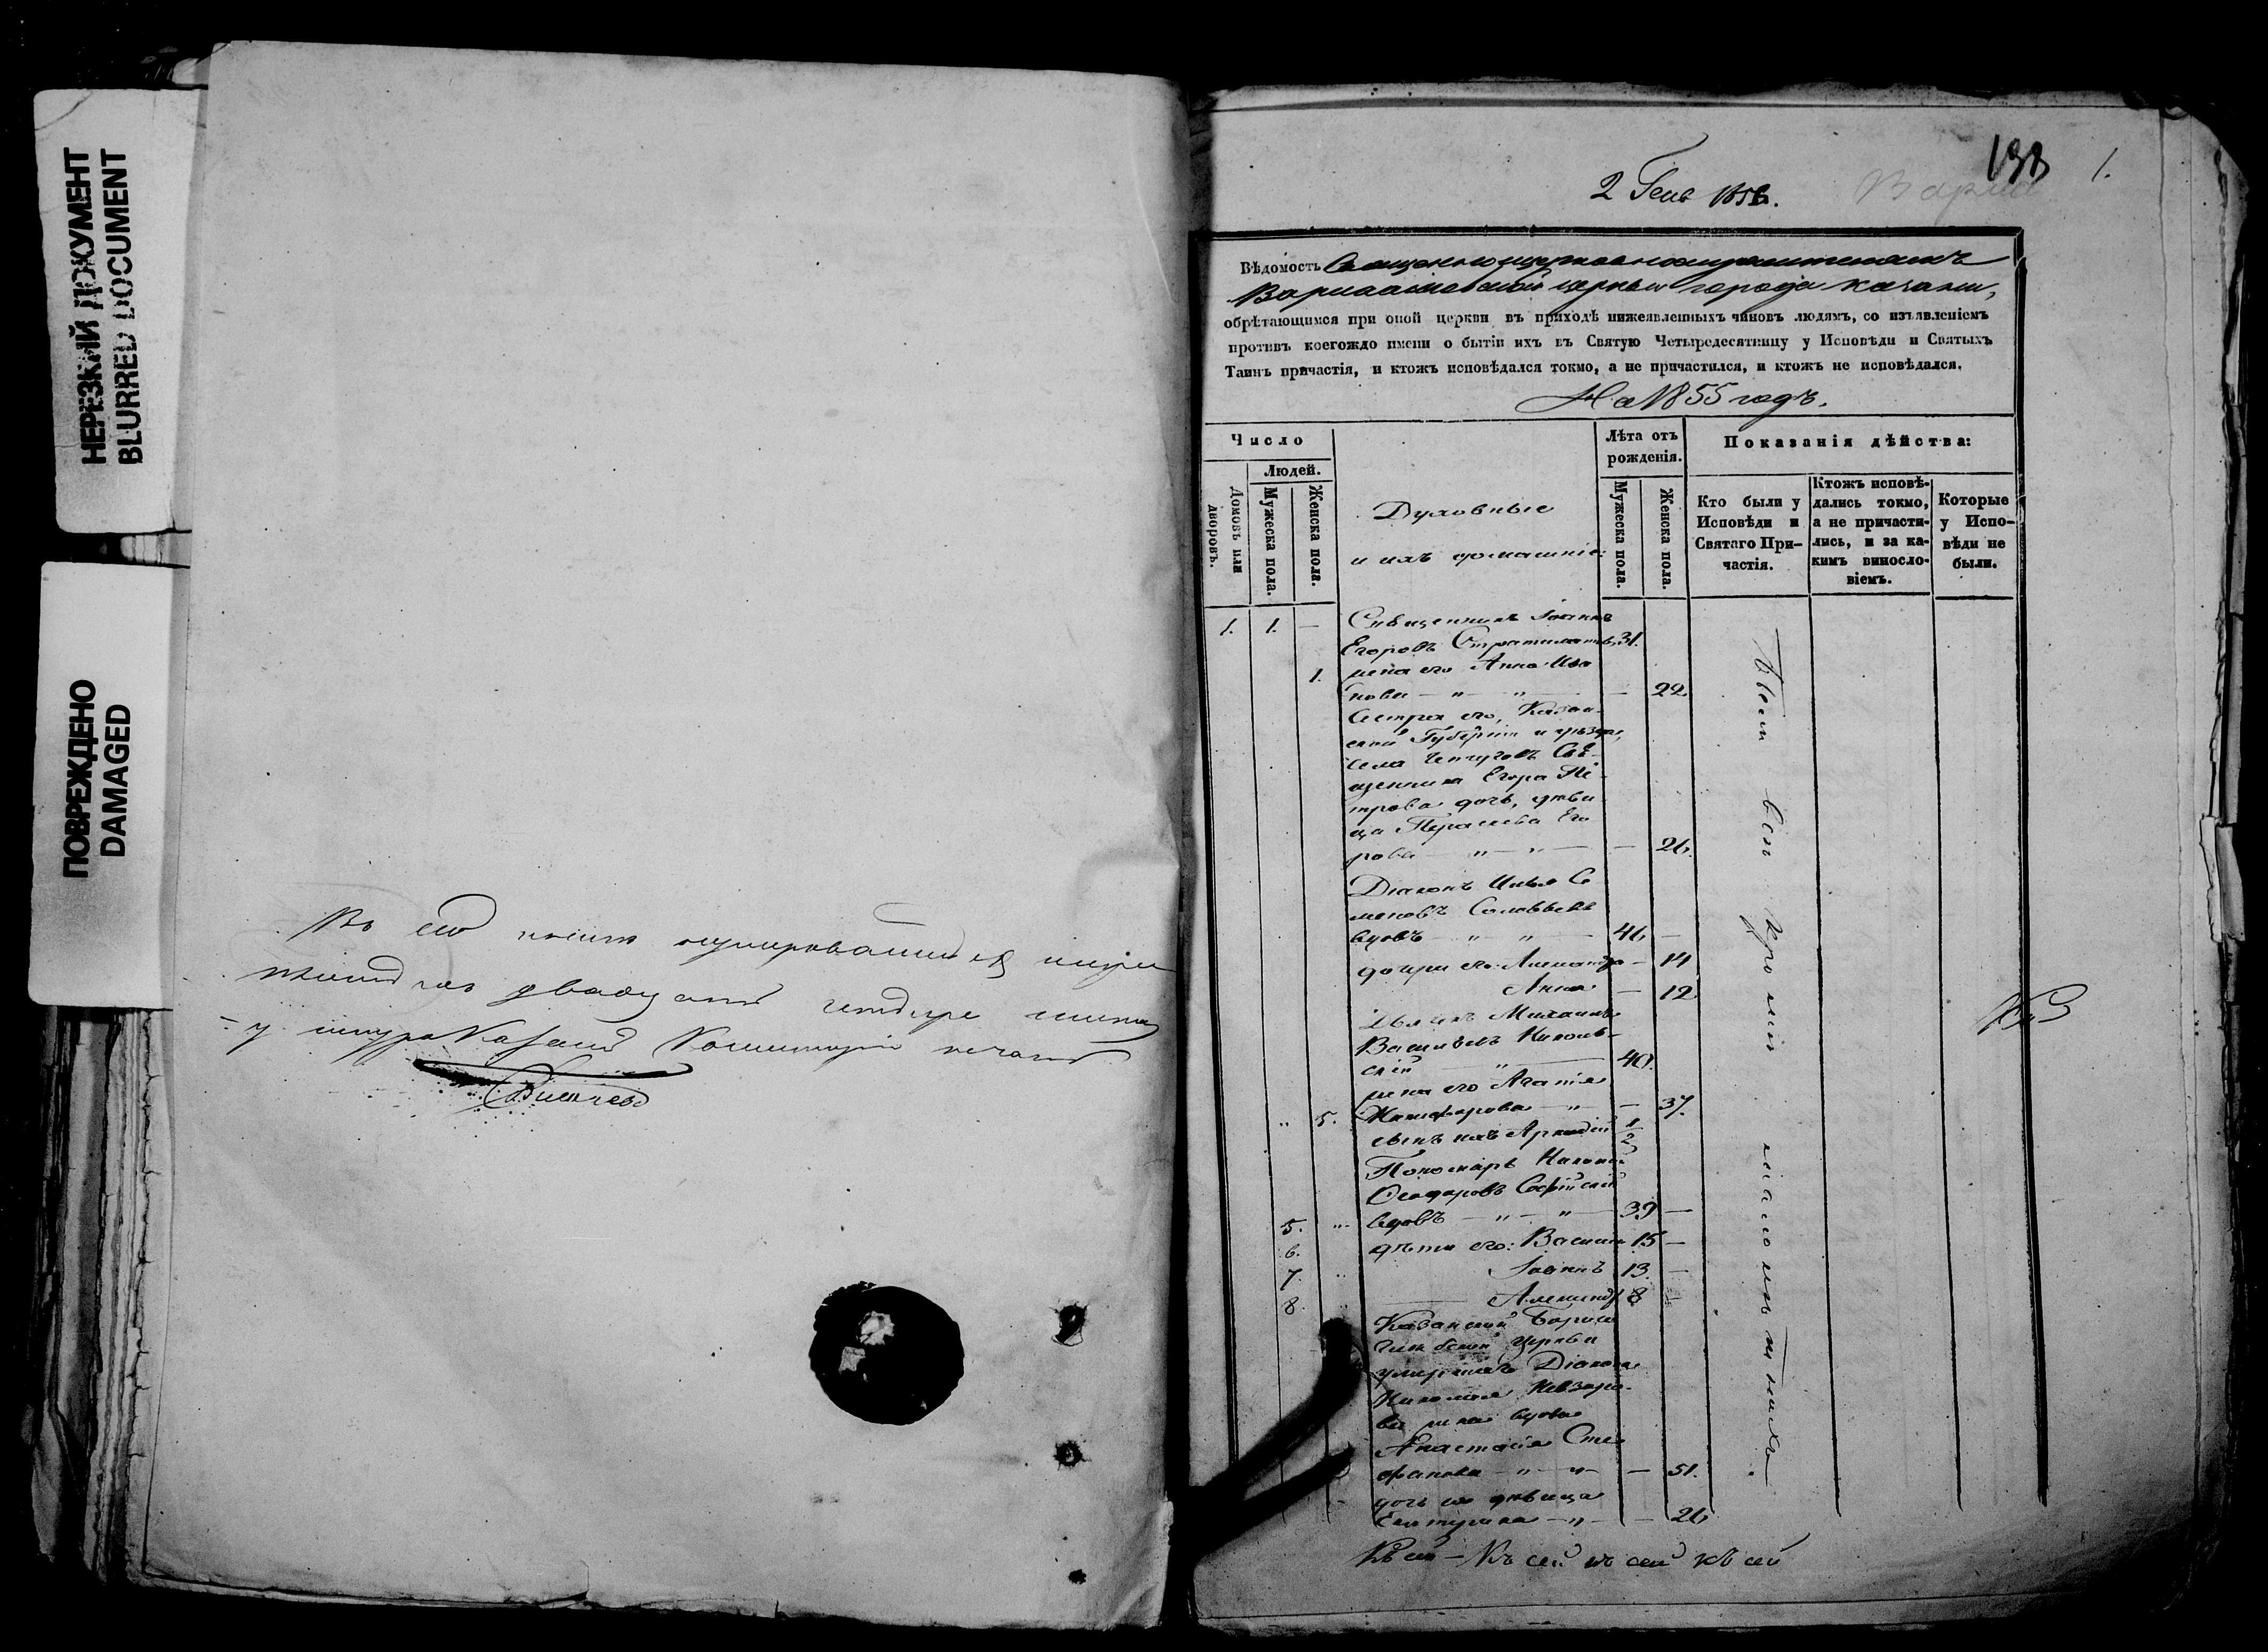 НЕРЕЗКИЙ ДОКУМЕНТ
BLURRED DOCUMENT
ПОВРЕЖДЕНО
DAMAGED
Въ сей книгѣ
двадцать четыре
у шнура Казанской Консисторіи печать
2 Генв 1856.
Варла
133
1.
Вѣдомость Священноцерковнослужителей
Варлаамовской церкви города Казани,
обрѣтающимся при оной церкви въ приходѣ нижеявленныхъ чиновъ людямъ, со изъявленіемъ
противъ коегождо имени о бытіи ихъ въ Святую Четыредесятницу у Исповѣди и Святыхъ
Таинъ причастія, и ктожъ исповѣдался токмо, а не причастился, и ктожъ не исповѣдался.
На 1855 годъ.
Число
Людей.
Домовъ или дворовъ.
Мужеска пола.
Женска пола.
Духовные
и ихъ домашніе:
Лѣта отъ рожденія.
Мужеска пола.
Женска пола.
Показанія дѣйства:
Кто были у Исповѣди и Святаго Причастія.
Ктожъ исповѣдались токмо, а не причастились, и за какимъ винословіемъ.
Которые у Исповѣди не были.
1. 1. — Священникъ Іоаннъ
Егоровъ Стратилатовъ 31.
1. жена его Анна Ива
нова — " — " — — 22
Сестра его, Казан-
ской Губерніи и уѣзда,
села Чепчуговъ Свя-
щенника Егора Пе-
трова дочь, дѣви
ца Параскева Его
рова — " — " — — 26.
Діаконъ Илья Се
меновъ Соловьевъ
вдовъ — " — " — 46 —
дочери его: Александра — 14
Анна — 12
Дьячекъ Михаилъ
Васильевъ Николь-
скій — " — 40.
жена его Агапія
" 5. Никифорова — " — — 37.
сынъ ихъ Аркадій 1/2
Пономарь Николай
Ѳеодоровъ Софійскій
5. " вдовъ — " — " — 39 —
6. дѣти его: Василій 15 —
7 " Іоаннъ 13. —
8. " Александръ 8 —
Казанской Борисо
глѣбской Церкви
умершаго Діакона
Николая Невзоро-
ва жена вдова
Анастасія Сте
фанова — " — " — — 51.
дочь ея дѣвица
Екатерина — " — — 26
Были всѣ кромѣ малолѣтнихъ.
Къ сей — Къ сей къ сей къ сей